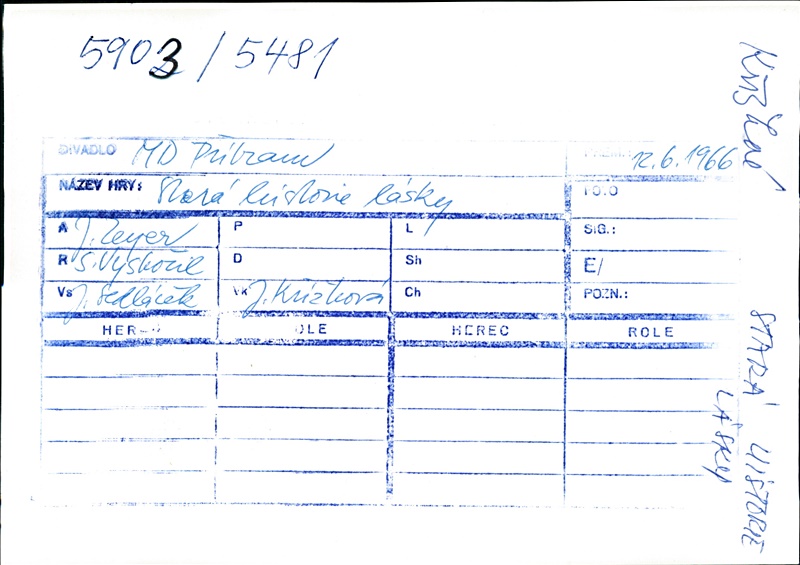 5903 / 5481
DIVADLO MD Příbram
12.6.1966
NÁZEV HRY: Stará historie lásky
FOTO
A J. Zeyer P L SIG.:
R S. Vyskočil D Sh E/
Vs J. Sedláček Vk J. Křížková Ch POZN.:
HEREC ROLE HEREC ROLE
STARÁ HISTORIE
LÁSKY